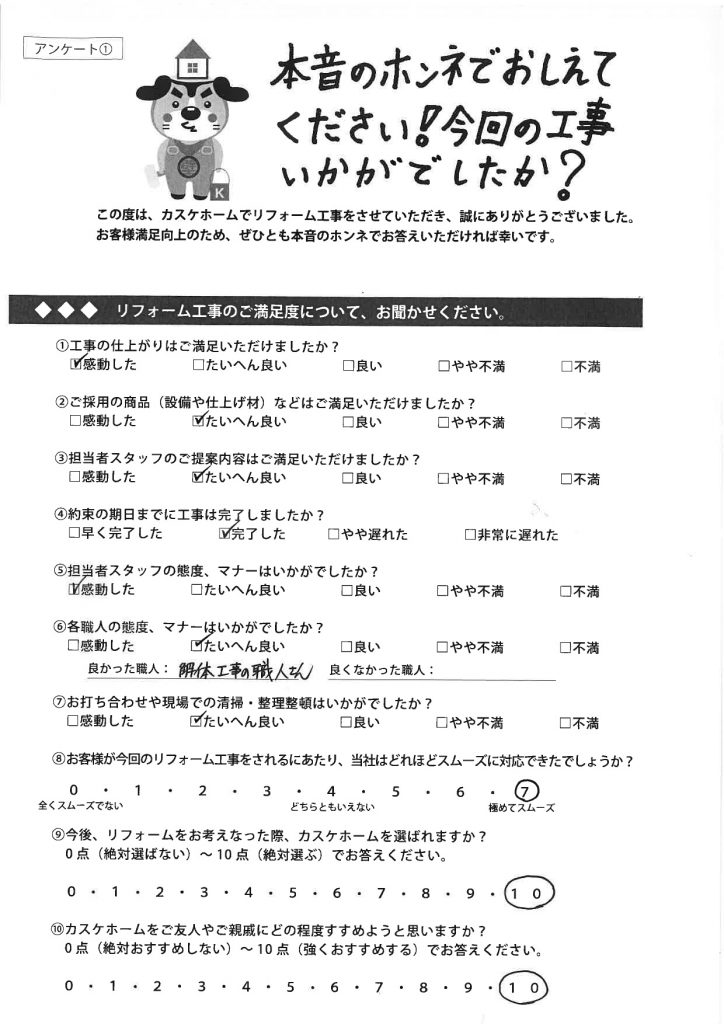 アンケート①
本音のホンネでおしえて
ください!今回の工事
いかがでしたか?
K
この度は、カスケホームでリフォーム工事をさせていただき、誠にありがとうございました。
お客様満足向上のため、ぜひとも本音のホンネでお答えいただければ幸いです。
◆◆◆ リフォーム工事のご満足度について、お聞かせください。
①工事の仕上がりはご満足いただけましたか?
☑感動した □たいへん良い □良い □やや不満 □不満
②ご採用の商品(設備や仕上げ材)などはご満足いただけましたか?
□感動した ☑たいへん良い □良い □やや不満 □不満
③担当者スタッフのご提案内容はご満足いただけましたか?
□感動した ☑たいへん良い □良い □やや不満 □不満
④約束の期日までに工事は完了しましたか?
□早く完了した ☑完了した □やや遅れた □非常に遅れた
⑤担当者スタッフの態度、マナーはいかがでしたか?
☑感動した □たいへん良い □良い □やや不満 □不満
⑥各職人の態度、マナーはいかがでしたか?
□感動した ☑たいへん良い □良い □やや不満 □不満
良かった職人: 解体工事の職人さん 良くなかった職人:
⑦お打ち合わせや現場での清掃・整理整頓はいかがでしたか?
□感動した ☑たいへん良い □良い □やや不満 □不満
⑧お客様が今回のリフォーム工事をされるにあたり、当社はどれほどスムーズに対応できたでしょうか?
0 ・ 1 ・ 2 ・ 3 ・ 4 ・ 5 ・ 6 ・ 7
全くスムーズでない どちらともいえない 極めてスムーズ
⑨今後、リフォームをお考えなった際、カスケホームを選ばれますか?
0点(絶対選ばない)~10点(絶対選ぶ)でお答えください。
0 ・ 1 ・ 2 ・ 3 ・ 4 ・ 5 ・ 6 ・ 7 ・ 8 ・ 9 ・ 10
⑩カスケホームをご友人やご親戚にどの程度すすめようと思いますか?
0点(絶対おすすめしない)~10点(強くおすすめする)でお答えください。
0 ・ 1 ・ 2 ・ 3 ・ 4 ・ 5 ・ 6 ・ 7 ・ 8 ・ 9 ・ 10